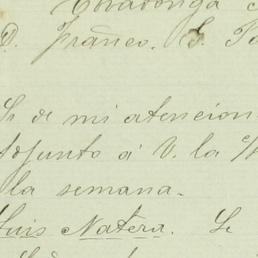 Covadonga
D. Franco. S.
Sr de mi atencion
Adjunto á V. la
la semana.
Luis Natera. Se